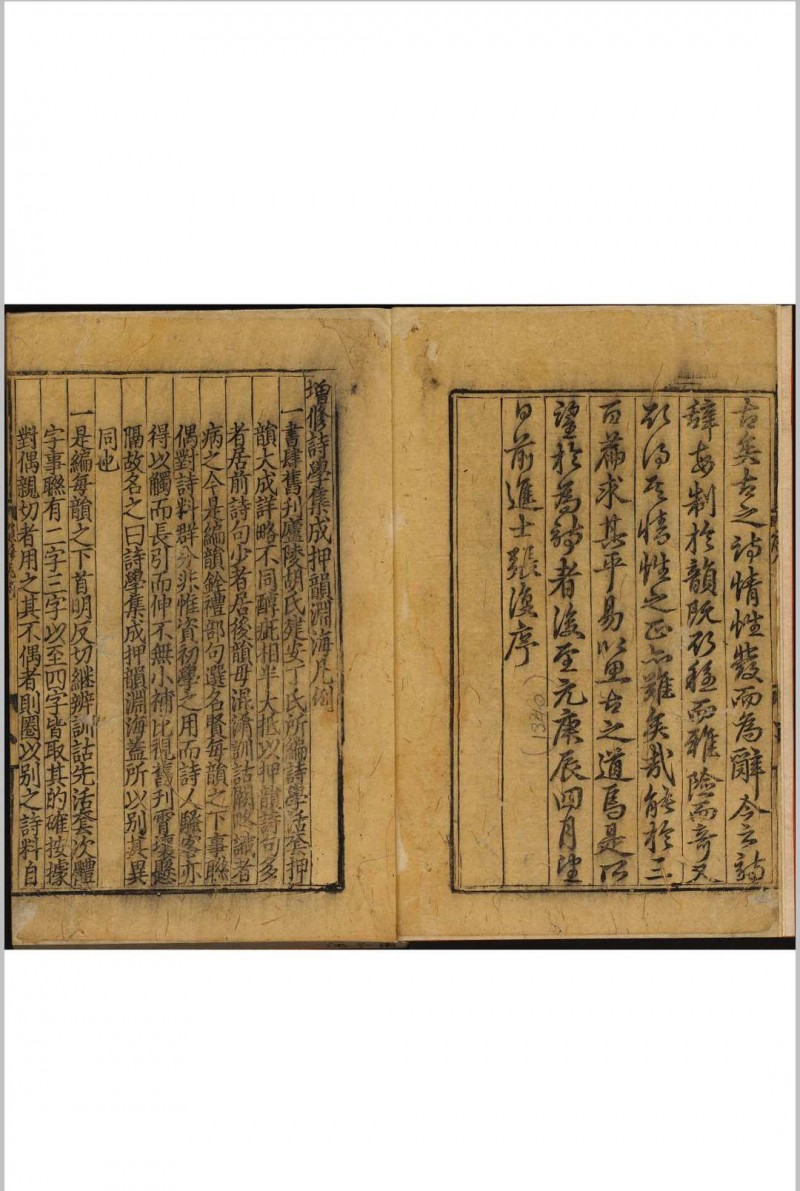 古矣古之詩情性發而為辭今之詩
辭每制於韻既欲穩而雅險而奇又
欲得其情性之正亦難矣哉能於三
百篇求其平易以思古之道焉是所
望於為詩者後至元庚辰四月望
日前進士張復序
(1340)
增修詩學集成押韻淵海凡例
一書肆舊刊廬陵胡氏建安丁氏所編詩學活套押
韻大成詳略不同醇疵相半大抵以押韻詩句多
者居前詩句少者居後韻母混淆訓詁闕略識者
病之今是編韻銓禮部句選名賢每韻之下事聯
偶對詩料群分非惟資初學之用而詩人騷客亦
得以觸而長引而伸不無小補比視舊刊霄壤懸
隔故名之曰詩學集成押韻淵海蓋所以別其異
同也
一是編每韻之下首明反切継辨訓詁先活套次體
字事聯有二字三字以至四字皆取其的確按據
對偶親切者用之其不偶者則圈以別之詩料自